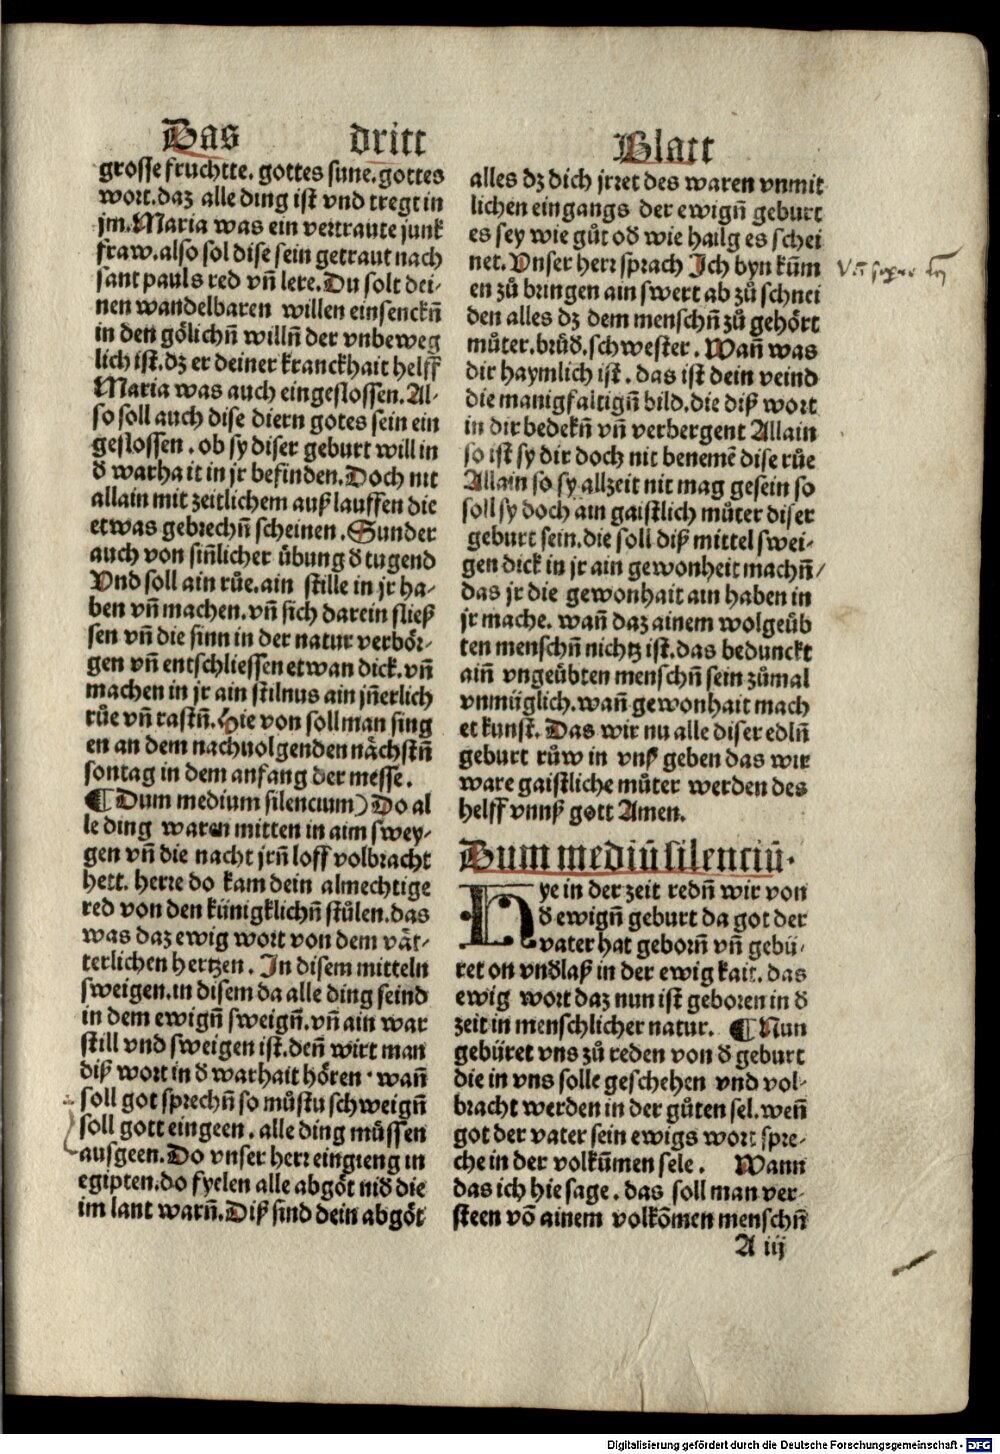 Das dritt Blatt
grosse fruchtte. gottes sune. gottes
wort. daz alle ding ist vnd tregt in
jm. Maria was ein vertraute junk
fraw. also sol dise sein getraut nach
sant pauls red vn̄ lere. Du solt dei-
nen wandelbaren willen einsenckn̄
in den götlichn̄ willn̄ der vnbeweg
lich ist. dz er deiner kranckhait helff
Maria was auch eingeslossen. Al-
so soll auch dise diern gotes sein ein
geslossen. ob sy diser geburt will in
d̕ warhait in jr befinden. Doch nit
allain mit zeitlichem auß lauffen die
etwas gebrechn̄ scheinen. Sunder
auch von sin̄licher übung d̕ tugend
Vnd soll ain růe. ain stille in jr ha-
ben vn̄ machen. vn̄ sich darein sließ
sen vn̄ die sinn in der natur verbör-
gen vn̄ entschliessen etwan dick. vn̄
machen in jr ain stilnus ain jn̄erlich
růe vn̄ rastn̄. Hie von soll man sing
en an dem nachuolgenden nächstn̄
sontag in dem anfang der messe.
¶ Dum medium silencium) Do al
le ding waren mitten in aim swey-
gen vn̄ die nacht jrn̄ loff volbracht
hett. herre do kam dein almechtige
red von den künigklichn̄ stůlen. das
was daz ewig wort von dem vät-
terlichen hertzen. In disem mitteln
sweigen. in disem da alle ding seind
in dem ewign̄ sweign̄. vn̄ ain war
still vnd sweigen ist. den̄ wirt man
diß wort in d̕ warhait hören. wan̄
soll got sprechn̄ so můstu schweign̄
soll gott eingeen. alle ding müssen
ausgeen. Do vnser herr eingieng in
egipten. do fyelen alle abgöt nid̕ die
im lant warn̄. Diß sind dein abgöt
alles dz dich jrret des waren vnmit
lichen eingangs der ewign̄ geburt
es sey wie gůt od̕ wie hailg es schei
net. Vnser herr sprach Ich byn kūm
en zů bringen ain swert ab zů schnei
den alles dz dem menschn̄ zů gehört
můter. brůd̕. schwester. Wan̄ was
dir haymlich ist. das ist dein veind
die manigfaltign̄ bild. die diß wort
in dir bedekn̄ vn̄ verbergent Allain
so ist sy dir doch nit benemē dise růe
Allain so sy allzeit nit mag gesein so
soll sy doch ain gaistlich můter diser
geburt sein. die soll diß mittel swei-
gen dick in jr ain gewonheit machn̄/
das jr die gewonhait ain haben in
jr mache. wan̄ daz ainem wolgeüb
ten menschn̄ nichtz ist. das bedunckt
ain̄ vngeübten menschn̄ sein zůmal
vnmüglich. wan̄ gewonhait mach
et kunst. Das wir nu alle diser edln̄
geburt růw in vnß geben das wir
ware gaistliche můter werden des
helff vnnß gott Amen.
Dum mediū silenciū.
HYe in der zeit redn̄ wir von
d̕ ewign̄ geburt da got der
vater hat geborn̄ vn̄ gebü-
ret on vnd̕laß in der ewigkait. das
ewig wort daz nun ist geboren in d̕
zeit in menschlicher natur. ¶ Nun
gebüret vns zů reden von d̕ geburt
die in vns solle geschehen vnd vol-
bracht werden in der gůten sel. wen̄
got der vater sein ewigs wort spre-
che in der volkūmen sele. Wann
das ich hie sage. das soll man ver-
steen vō ainem volkōmen menschn̄
A iij
Digitalisierung gefördert durch die Deutsche Forschungsgemeinschaft - DFG